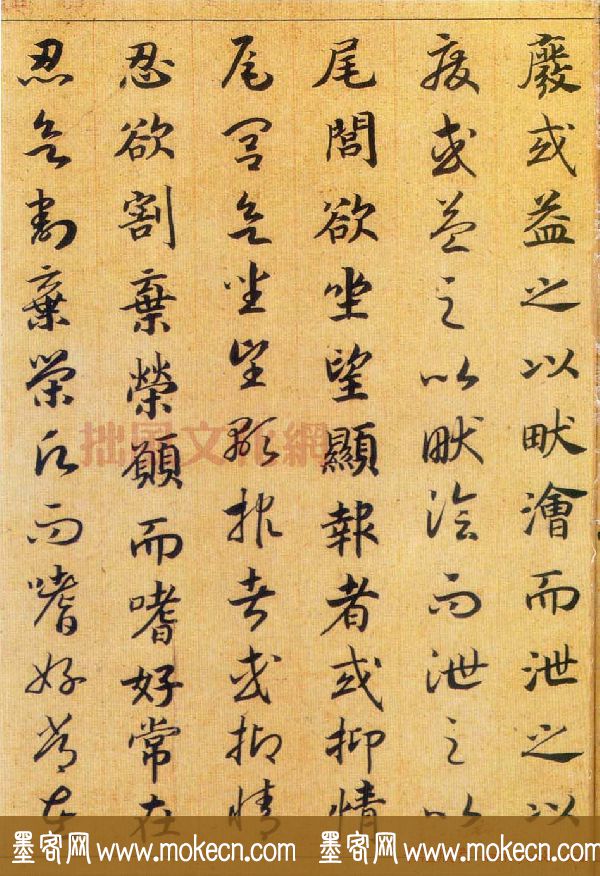 廢或益之以畎澮而泄之以
廢或益之以畎澮而泄之以
尾閭欲坐望顯報者或抑情
尾閭欲坐望顯報者或抑情
忍欲割棄榮願而嗜好常在
忍欲割棄榮願而嗜好常在
拙風文化網
墨客网 www.mokecn.com 墨客网 www.mokecn.com